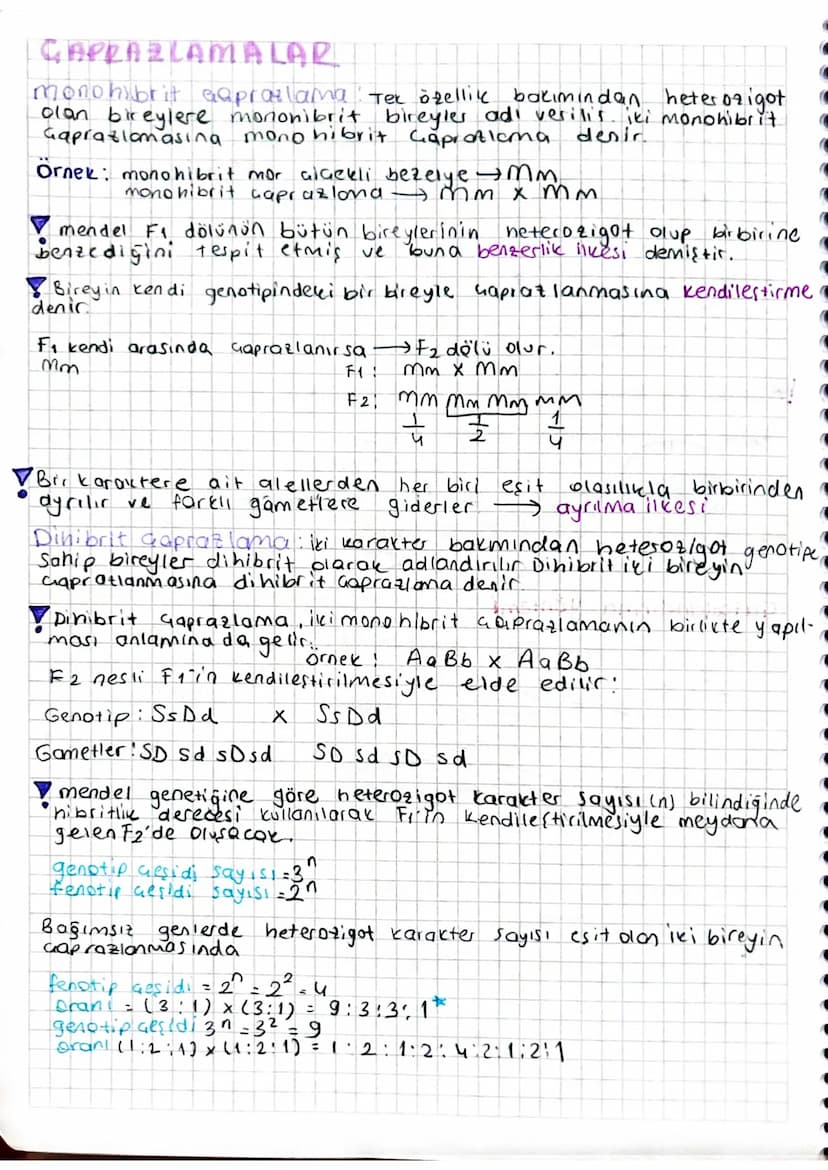 ÇAPRAZLAMALAR
monohibrit çaprazlama: Tek özellik bakımından heterozigot
olan bireylere monohibrit bireyler adı verilir. iki monohibrit
çaprazlamasına monohibrit çaprazlama denir.
Örnek: monohibrit mor çiçekli bezelye → Mm
monohibrit çaprazlama → Mm x Mm
! mendel F1 dölünün bütün bireylerinin heterozigot olup birbirine
benzediğini tespit etmiş ve buna benzerlik ilkesi demiştir.
! Bireyin kendi genotipindeki bir bireyle çaprazlanmasına kendileştirme
denir.
F1 kendi arasında çaprazlanırsa → F2 dölü olur.
Mm F1: Mm x Mm
F2: MM Mm Mm mm
1/4 1/2 1/4
! Bir karaktere ait alellerden her biri eşit olasılıkla birbirinden
ayrılır ve farklı gametlere giderler → ayrılma ilkesi
Dihibrit çaprazlama: iki karakter bakımından heterozigot genotipe
Sahip bireyler dihibrit olarak adlandırılır Dihibrit iki bireyin
çaprazlanmasına dihibrit çaprazlama denir
! Dihibrit çaprazlama, iki monohibrit çaprazlamanın birlikte yapıl-
ması anlamına da gelir.
örnek: AaBb x AaBb
F2 nesli F1'in kendileştirilmesiyle elde edilir:
Genotip: SsDd x SsDd
Gametler: SD Sd sD sd SD Sd sD sd
! mendel genetiğine göre heterozigot karakter sayısı (n) bilindiğinde
hibritlik derecesi kullanılarak F1'in kendileştirilmesiyle meydana
gelen F2'de oluşacak.
genotip çeşidi sayısı = 3ⁿ
fenotip çeşidi sayısı = 2ⁿ
Bağımsız genlerde heterozigot karakter sayısı eşit olan iki bireyin
çaprazlanmasında
fenotip çeşidi = 2ⁿ = 2² = 4
oranı = (3:1) x (3:1) = 9:3:3:1*
genotip çeşidi 3ⁿ = 3² = 9
oranı (1:2:1) x (1:2:1) = 1:2:1:2:4:2:1:2:1